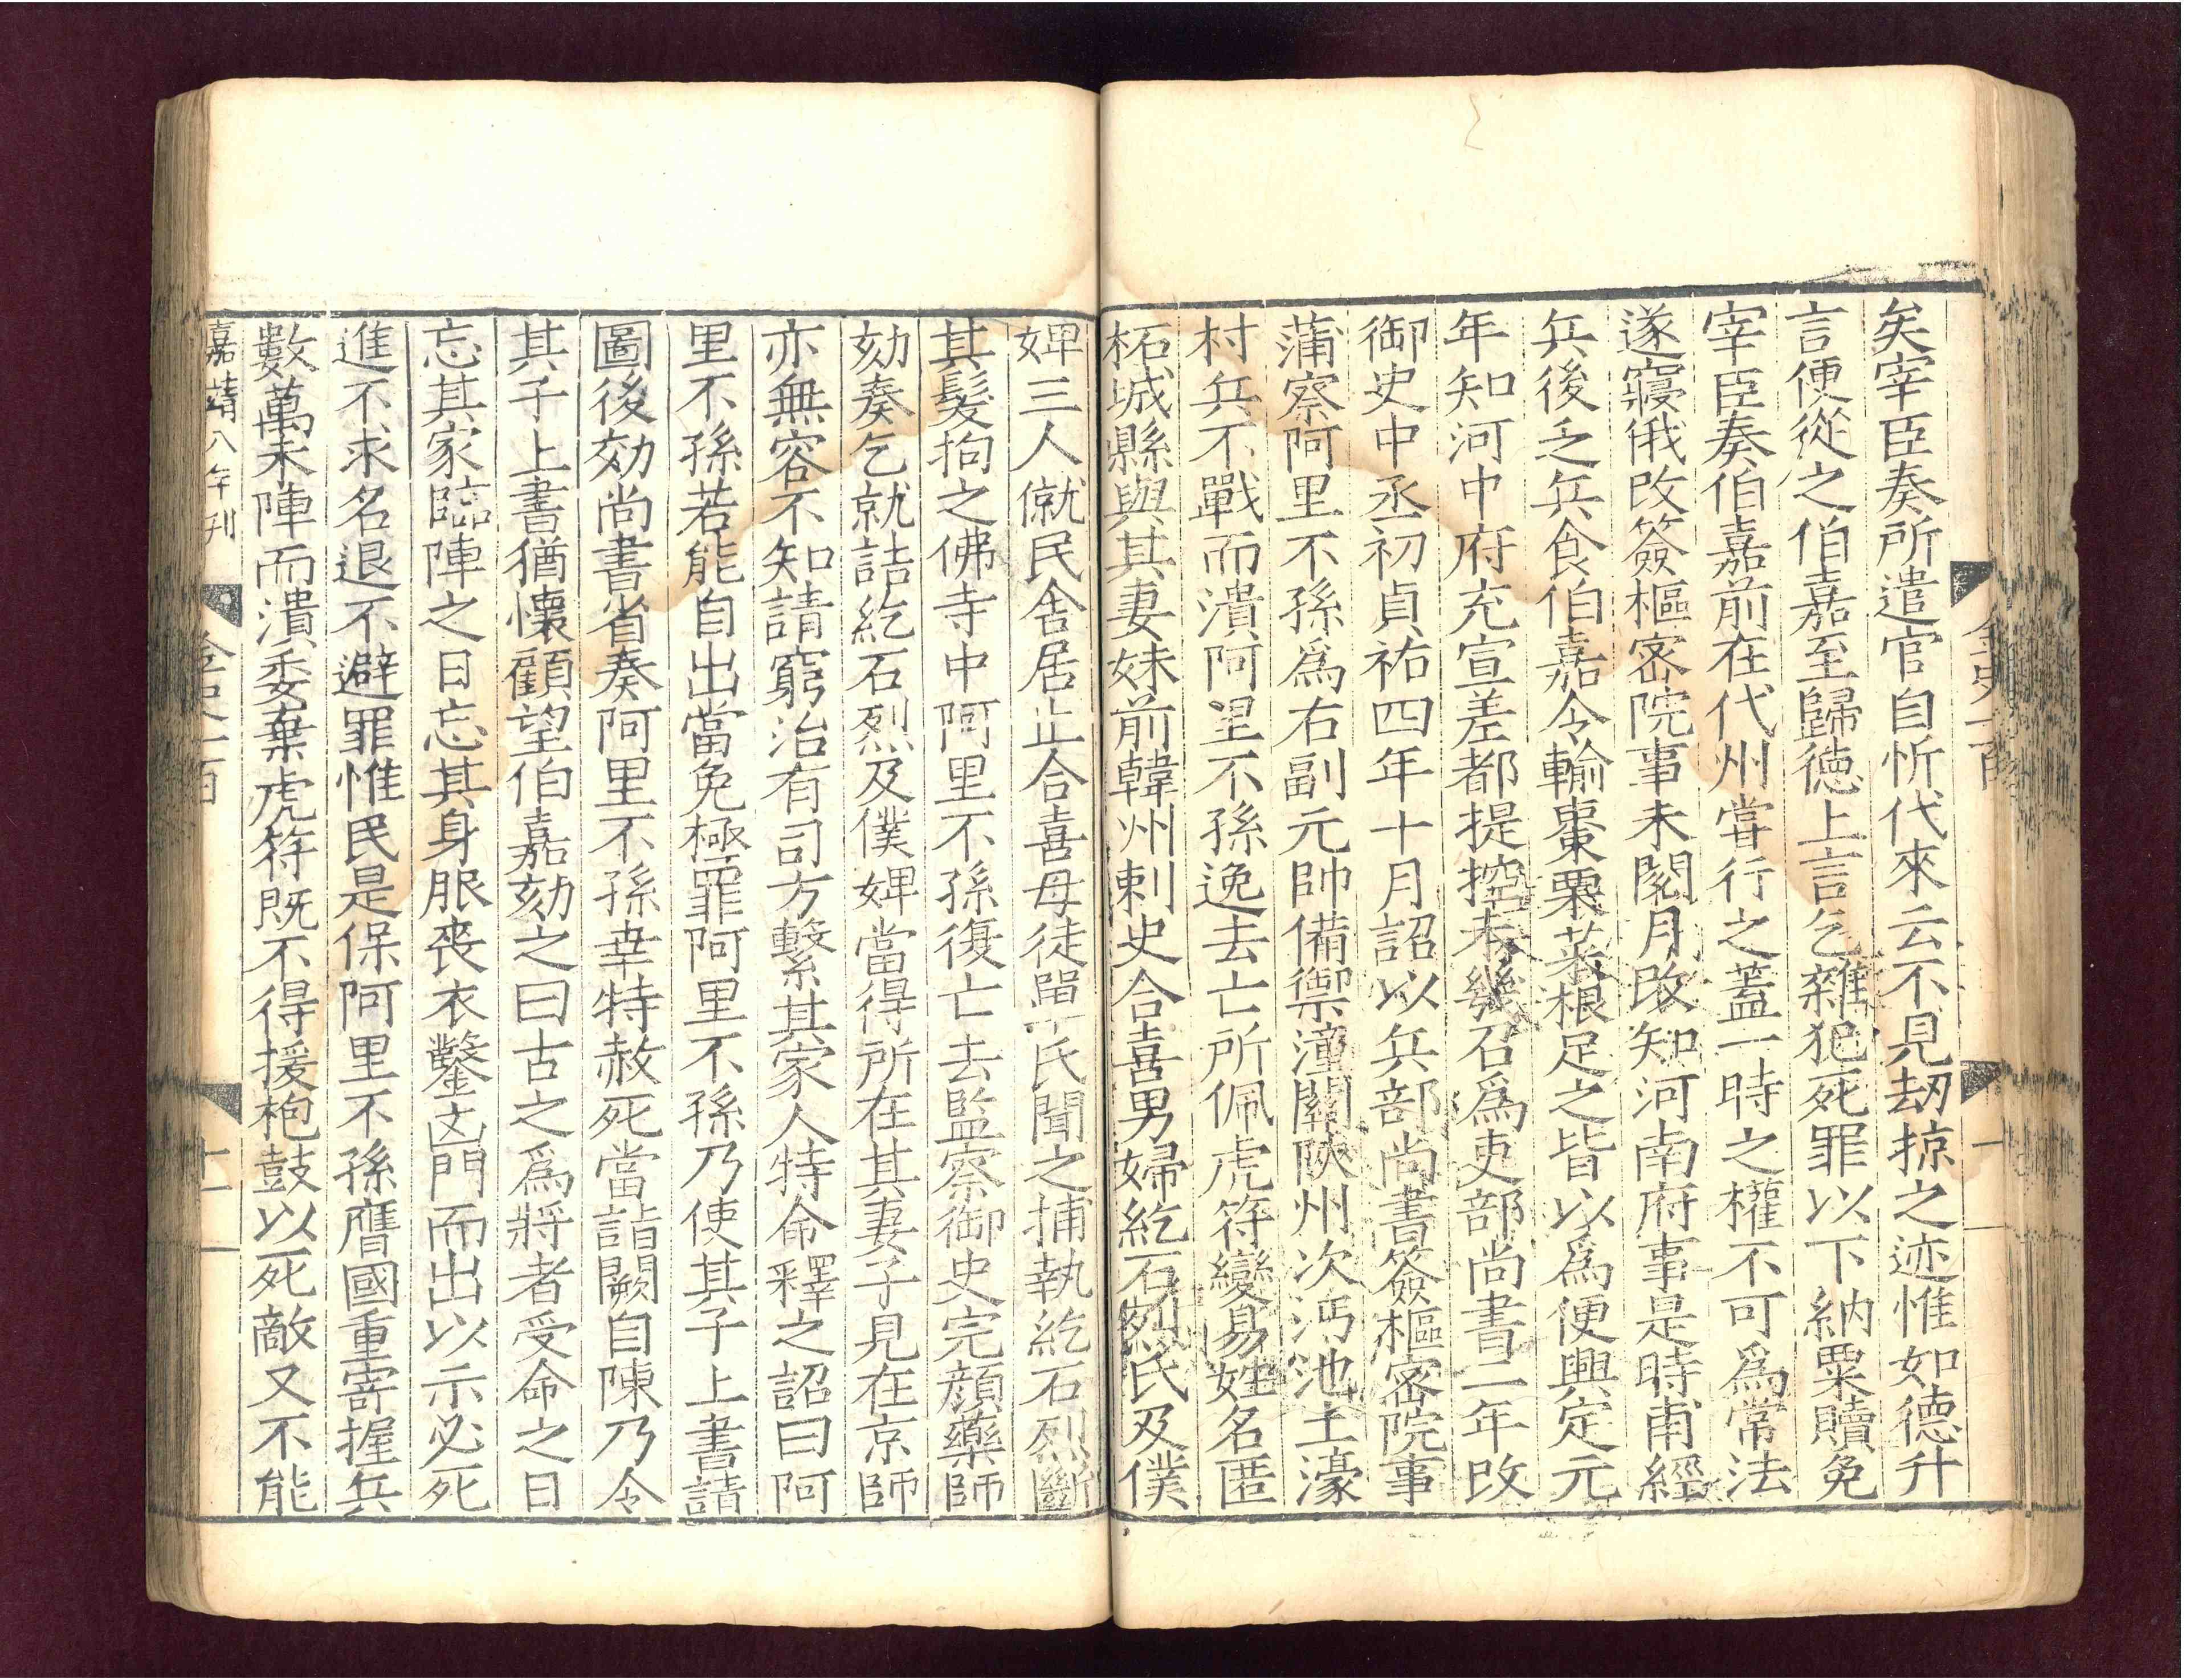 矣宰臣奏所遣官自忻代來云不見劫掠之迹惟如德升
言便從之伯嘉至歸德上言乞雜犯死罪以下納粟贖免
宰臣奏伯嘉前在代州嘗行之蓋一時之權不可爲常法
遂寢俄改簽樞密院事未閱月改知河南府事是時甫經
兵後乏兵食伯嘉令輸棗栗菜根足之皆以爲便興定元
年知河中府充宣差都提控未幾召爲吏部尚書二年改
御史中丞初貞祐四年十月詔以兵部尚書簽樞密院事
蒲察阿里不孫爲右副元帥備禦潼關陝州次沔池土濠
村兵不戰而潰阿里不孫逸去亡所佩虎符變易姓名匿
柘城縣與其妻妹前韓州刺史合喜男婦紇石烈氏及僕
婢三人僦民舍居止合喜母徒單氏聞之捕執紇石烈斷
其髮拘之佛寺中阿里不孫復亡去監察御史完顔藥師
劾奏乞就詰紇石烈及僕婢當得所在其妻子見在京師
亦無容不知請窮治有司方繫其家人特命釋之詔曰阿
里不孫若能自出當免極罪阿里不孫乃使其子上書請
圖後効尚書省奏阿里不孫幸特赦死當詣闕自陳乃令
其子上書猶懷顧望伯嘉劾之曰古之爲將者受命之日
忘其家臨陣之日忘其身服喪衣鑿凶門而出以示必死
進不求名退不避罪惟民是保阿里不孫膺國重寄握兵
數萬未陣而潰委棄虎符既不得援枹鼓以死敵又不能
嘉靖八年刊
金史一百
十一